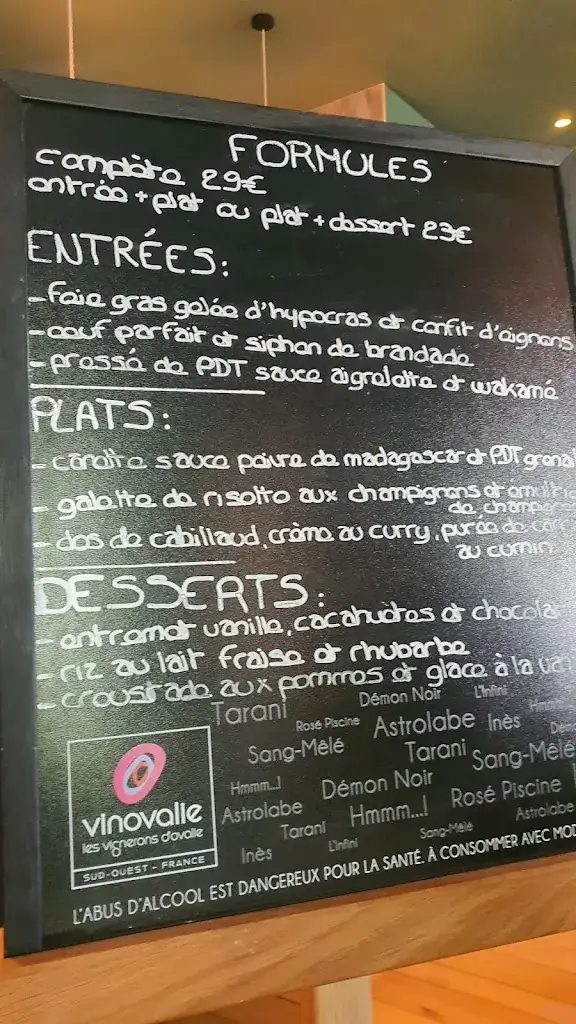 FORMULES
complète 29€
entrée + plat ou plat + dessert 23€
ENTRÉES:
- foie gras gelée d'hypocras et confit d'oignons
- oeuf parfait et siphon de brandade
- pressé de PDT sauce aigrelette et wakamé
PLATS:
- canette sauce poivre de madagascar et PDT
- galette de risotto aux champignons et
de
- dos de cabillaud, crème au curry, purée de
au cumin
DESSERTS:
- entremet vanille, cacahuètes et
- riz au lait fraise et rhubarbe
- croustade aux pommes et glace à la
Tarani Démon Noir L'Infini
Rosé Piscine Astrolabe Inès
Sang-Mêlé Tarani Sang-Mêlé
Hmmm...! Démon Noir Rosé Piscine
Astrolabe Hmmm...! Astrolabe
Tarani Sang-Mêlé
Inès L'Infini
vinovalie
les vignerons d'ovalie
SUD-OUEST - FRANCE
L'ABUS D'ALCOOL EST DANGEREUX POUR LA SANTÉ. À CONSOMMER AVEC